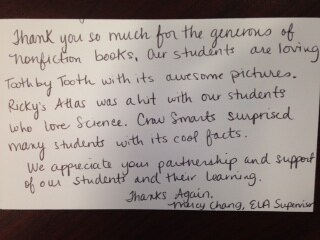 Thank you so much for the generous of
nonfiction books, Our students are loving
Tooth by Tooth with its awesome pictures.
Ricky's Atlas was a hit with our students
who love Science. Crow Smarts surprised
many students with its cool facts.
We appreciate your partnership and support
of our students and their learning.
Thanks Again,
Mercy Chang, ELA Supervisor